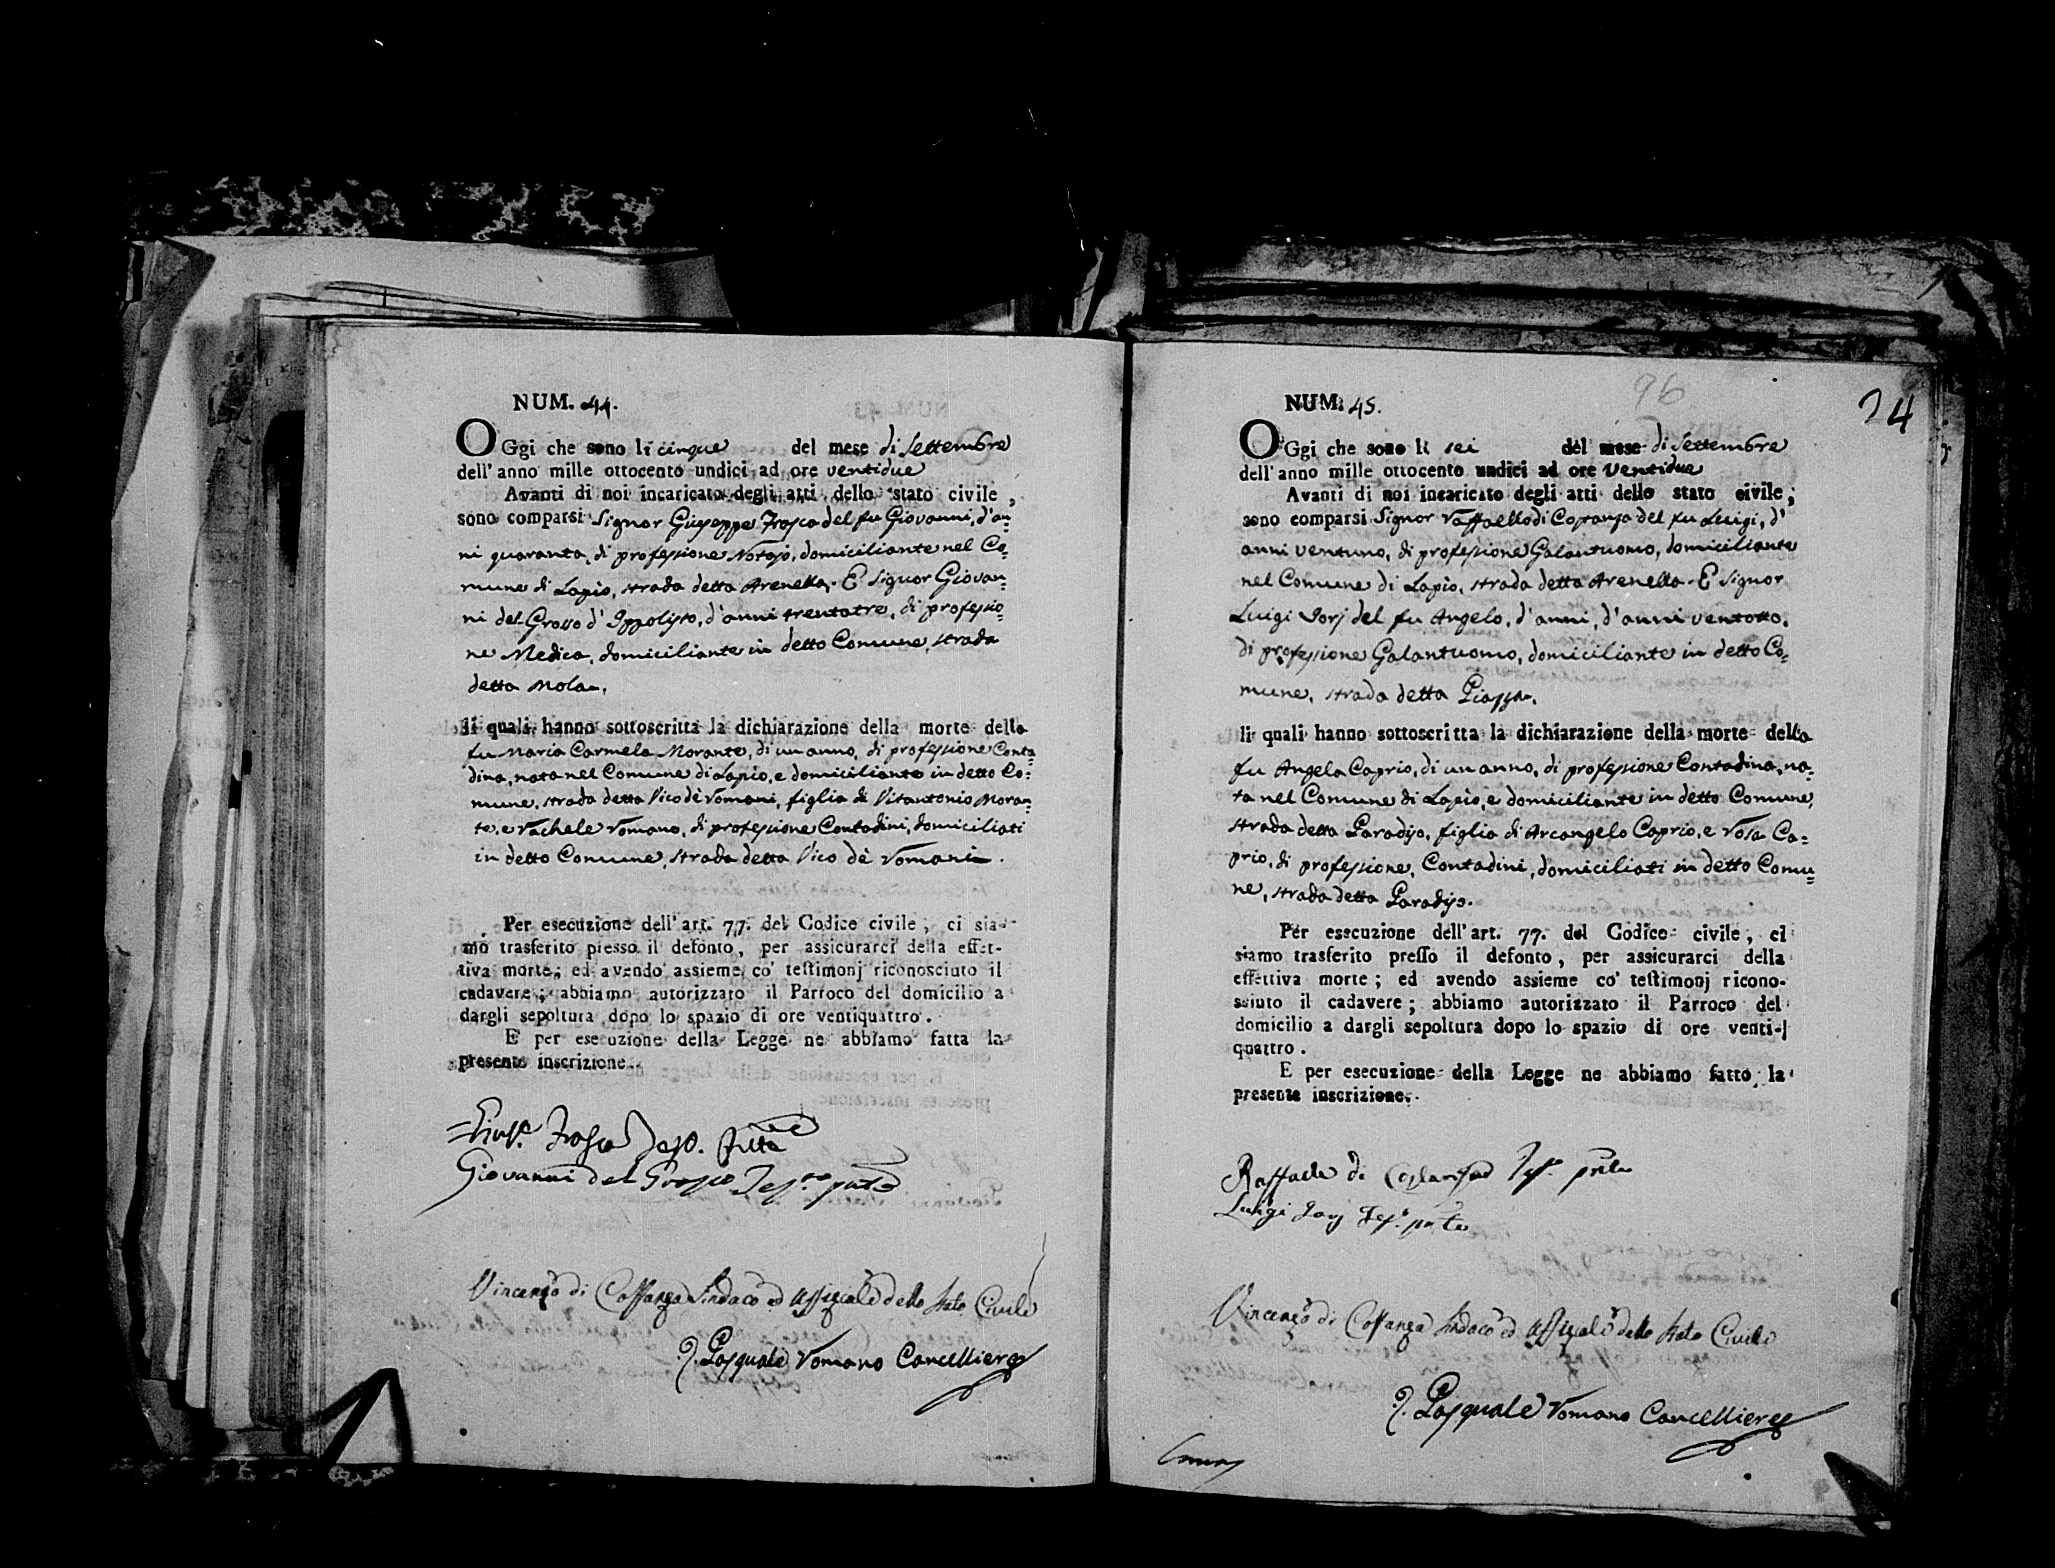 NUM. 44.
OGgi che sono li cinque del mese di Settembre
dell' anno mille ottocento undici ad ore ventidue
Avanti di noi incaricato degli atti dello stato civile,
sono comparsi Signor Giuseppe Trosca del fu Giovanni, d'an=
ni quaranta, di professione Notajo, domiciliante nel Co=
mune di Lapio, strada detta Arenella. E Signor Giovan=
ni del Grosso d' Ippolisto, d'anni trentatre, di professio=
ne Medico, domiciliante in detto Comune, strada
detta Mola.
li quali hanno sottoscritta la dichiarazione della morte della
fu Maria Carmela Morante, di un anno, di professione Conta=
dina, nata nel Comune di Lapio, e domiciliante in detto Co=
mune, strada detta Vico dè Romani, figlia di Vitantonio Moran=
te, e Rachele Romano, di professione Contadini, domiciliati
in detto Comune, strada detta Vico dè Romani.
Per esecuzione dell' art. 77. del Codice civile, ci sia-
mo trasferito presso il defonto, per assicurarci della effet-
tiva morte; ed avendo assieme co' testimonj riconosciuto il
cadavere; abbiamo autorizzato il Parroco del domicilio a
dargli sepoltura dopo lo spazio di ore ventiquattro.
E per esecuzione della Legge ne abbiamo fatta la
presente inscrizione.
Giovanni del Grosso
Vincenzo di Costanza Sindaco ed Uffiziale dello Stato Civile
P. Pasquale Romano Cancelliere
96
24
NUM. 45.
OGgi che sono li sei del mese di Settembre
dell' anno mille ottocento undici ad ore ventidue
Avanti di noi incaricato degli atti dello stato civile;
sono comparsi Signor Raffaello di Costanza del fu Luigi, d'
anni ventuno, di professione Galantuomo, domiciliante
nel Comune di Lapio, strada detta Arenella. E Signor
Luigi Jorj del fu Angelo, d'anni, d'anni ventotto,
di professione Galantuomo, domiciliante in detto Co=
mune, strada detta Piazza.
li quali hanno sottoscritta la dichiarazione della morte della
fu Angela Caprio, di un anno, di professione Contadina, na=
ta nel Comune di Lapio, e domiciliante in detto Comune,
strada detta Paradiso, figlia di Arcangelo Caprio, e Rosa Ca=
prio, di professione, Contadini, domiciliati in detto Comu=
ne, strada detta Paradiso.
Per esecuzione dell' art. 77. del Codice civile, ci
siamo trasferito presso il defonto, per assicurarci della
effettiva morte; ed avendo assieme co' testimonj ricono-
sciuto il cadavere; abbiamo autorizzato il Parroco del
domicilio a dargli sepoltura dopo lo spazio di ore venti-
quattro.
E per esecuzione della Legge ne abbiamo fatto la
presente inscrizione.
Raffaele di Costanza
Luigi Jorj
Vincenzo di Costanza Sindaco ed Uffiziale dello Stato Civile
P. Pasquale Romano Cancelliere